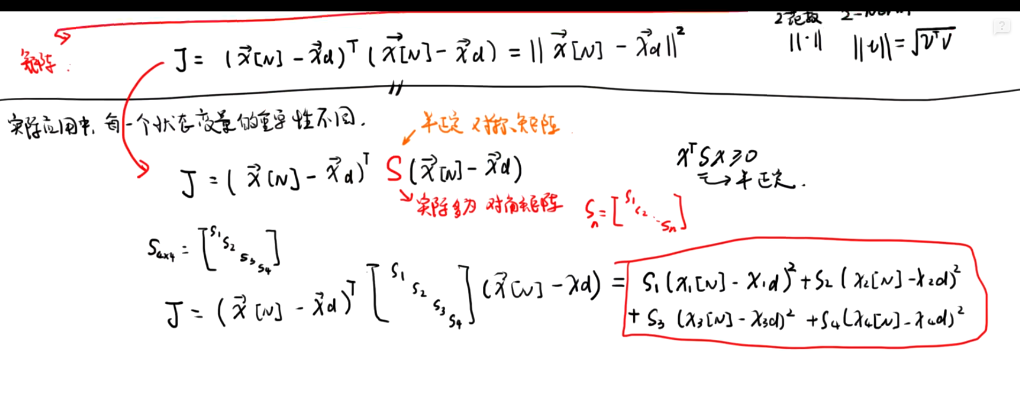 2范数 2-Norm
矩阵. J = (x⃗[N] - x⃗d)ᵀ (x⃗[N] - x⃗d) = ||x⃗[N] - x⃗d||² ||·|| ||v|| = √vᵀv
实际应用中, 每一个状态变量的重要性不同.
半正定 对称矩阵
J = (x⃗[N] - x⃗d)ᵀ S (x⃗[N] - x⃗d) xᵀSx ≥ 0
→ 半正定.
实际多为 对角矩阵 Sₙ = [S₁ S₂ ⋱ Sₙ]
S₄ₓ₄ = [S₁ S₂ S₃ S₄]
J = (x⃗[N] - x⃗d)ᵀ [S₁ S₂ S₃ S₄] (x⃗[N] - xd) = S₁(x₁[N] - x₁d)² + S₂(x₂[N] - x₂d)²
+ S₃(x₃[N] - x₃d)² + S₄(x₄[N] - x₄d)²